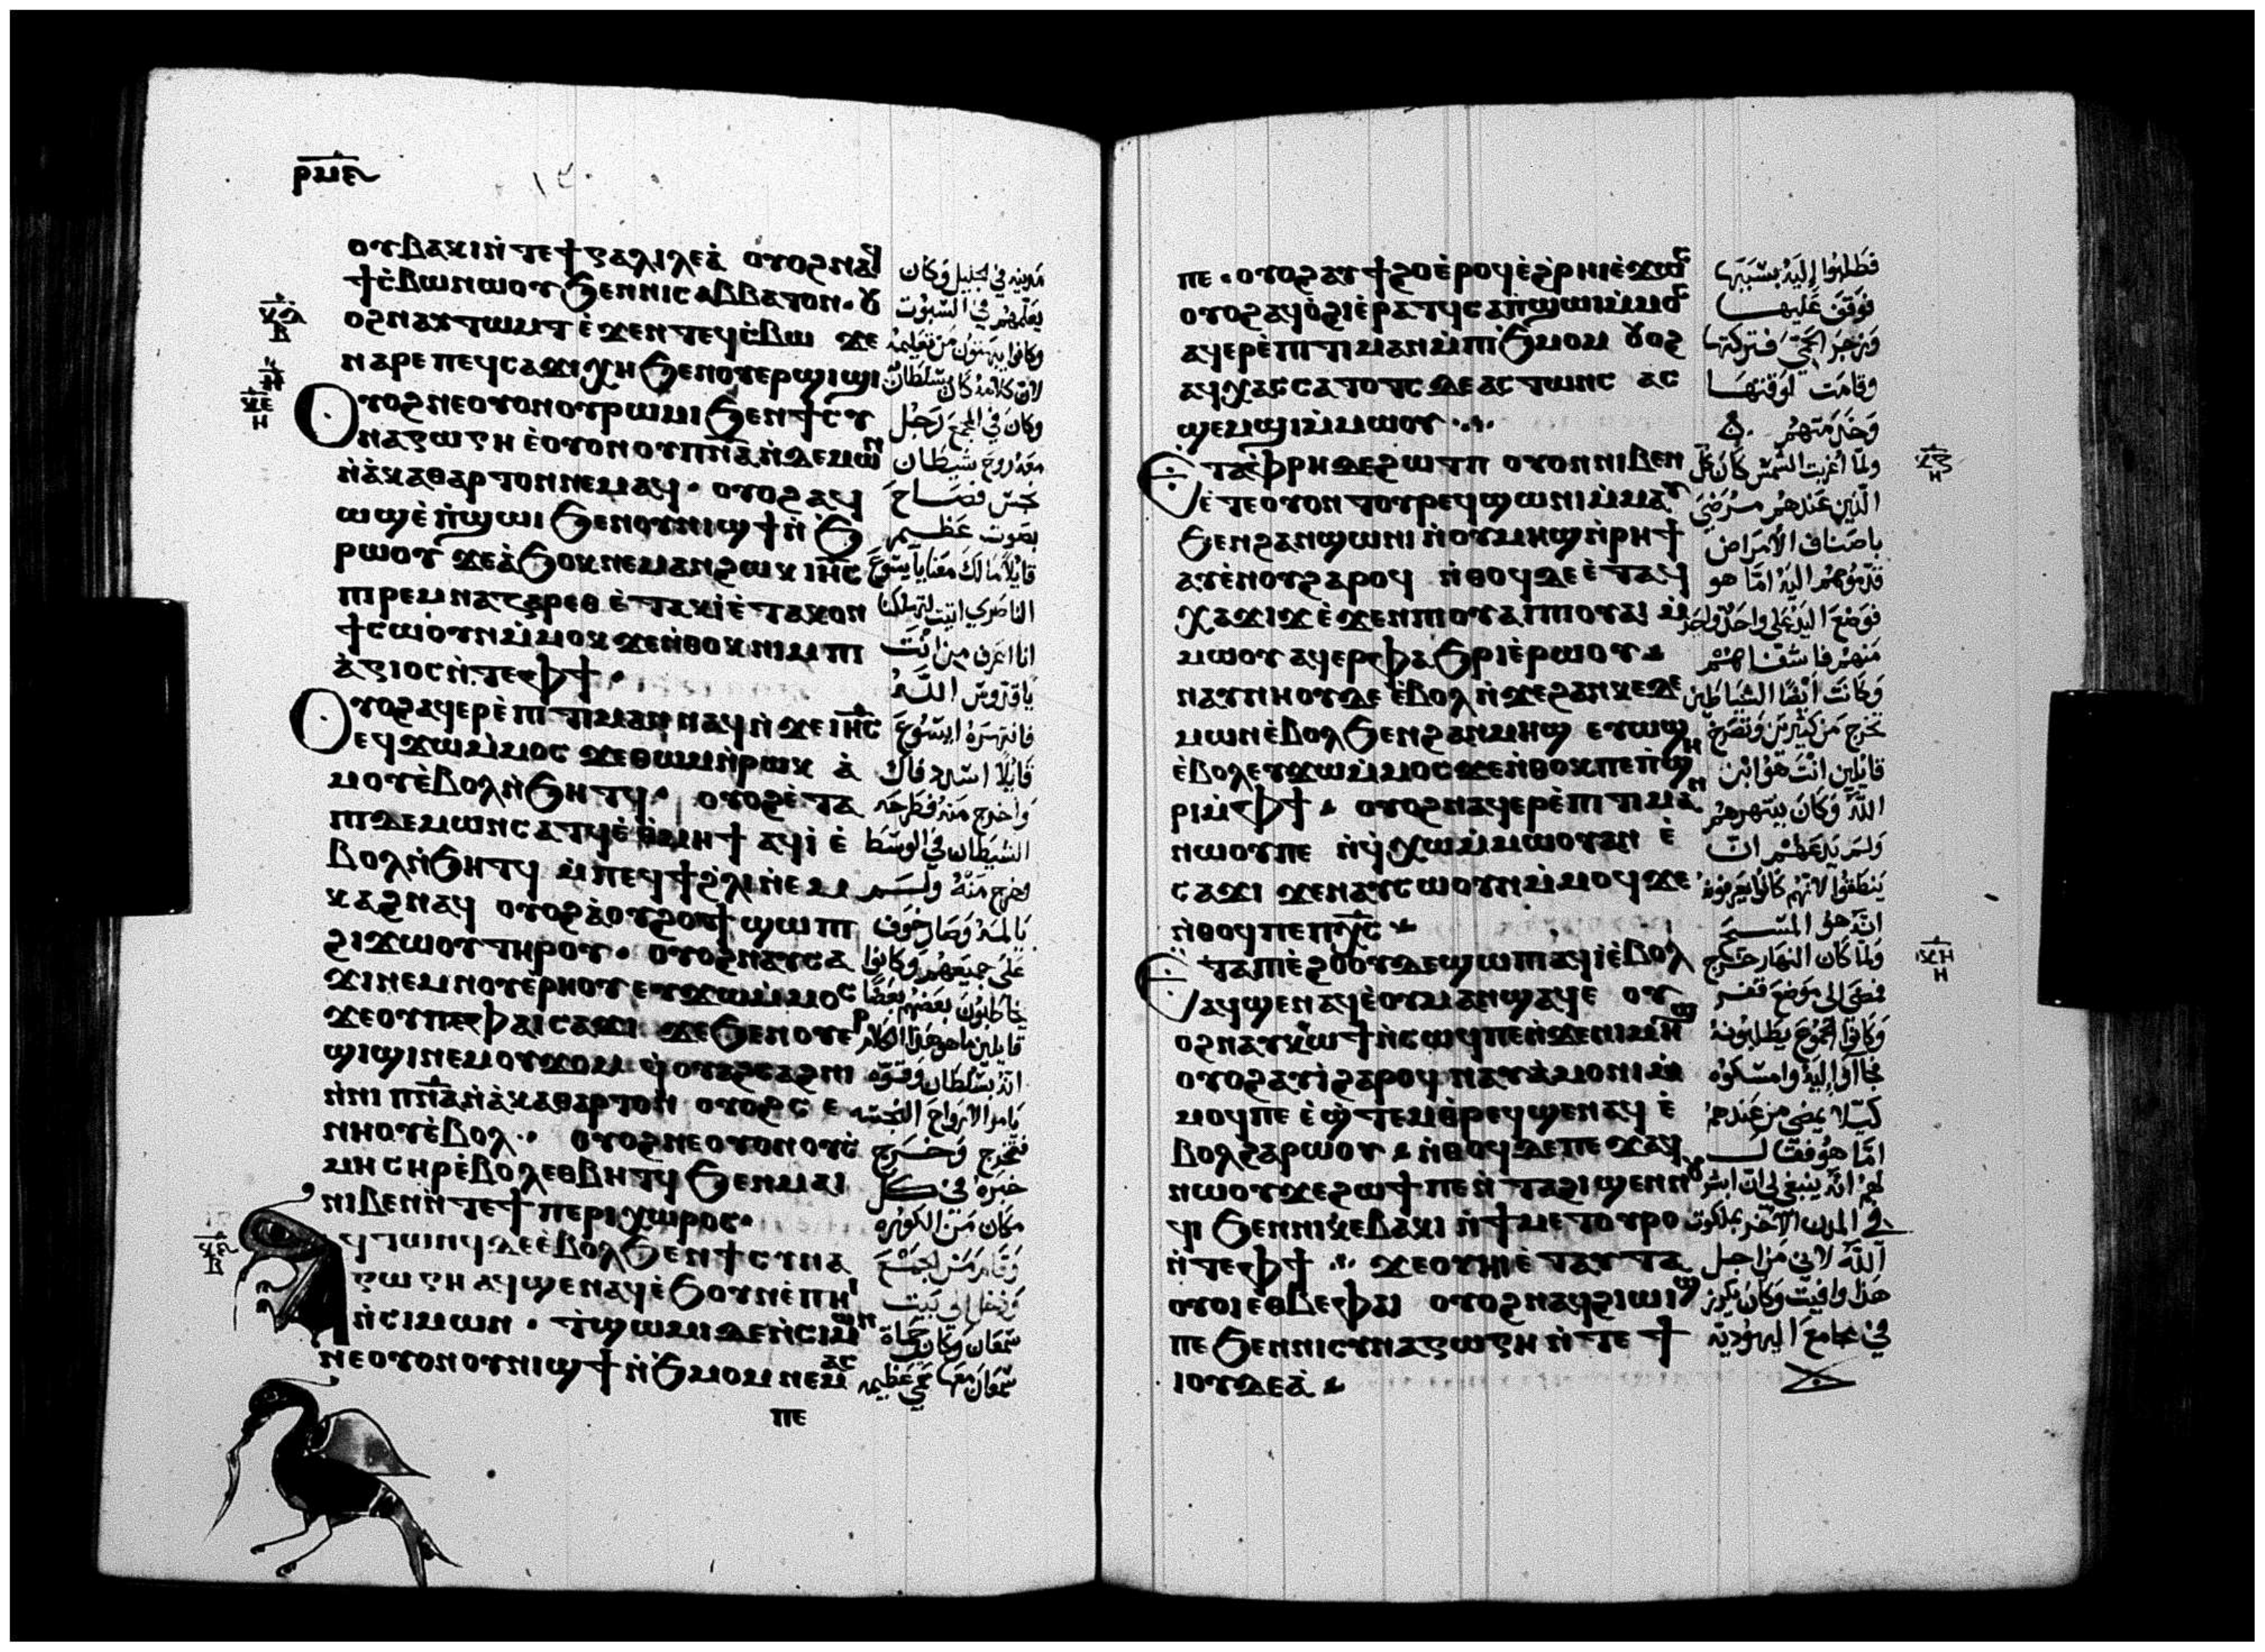 ⲣⲙⲉ
ⲟⲩⲃⲁⲕⲓ ⲛ̇ⲧⲉϯⲅⲁⲗⲓⲗⲉⲁ̇ ⲟⲩⲟϩ ⲛⲁϥ
ϯⲥ̇ⲃⲱ ⲛⲱⲟⲩ ϧⲉⲛⲛⲓⲥⲁⲃⲃⲁⲧⲟⲛ · ⲟⲩ
ⲟϩ ⲛⲁⲩⲧⲱⲙⲧ ⲉ̇ϫⲉⲛ ⲧⲉϥⲥ̇ⲃⲱ ϫⲉ
ⲛⲁⲣⲉ ⲡⲉϥⲥⲁϫⲓ ⲭⲏ ϧⲉⲛⲟⲩⲉⲣϣⲓϣⲓ
Ⲟⲩⲟϩ ⲛⲉⲟⲩⲟⲛ ⲟⲩⲣⲱⲙⲓ ϧⲉⲛϯⲥⲩ
ⲛⲁⲅⲱⲅⲏ ⲉ̇ⲟⲩⲟⲛ ⲟⲩⲡ̅ⲛ̅ⲁ̅ ⲛ̇ⲇⲉⲙⲱⲛ
ⲛ̇ⲁ̇ⲕⲁⲑⲁⲣⲧⲟⲛ ⲛⲉⲙⲁϥ · ⲟⲩⲟϩ ⲁϥ
ⲱϣ ⲉ̇ⲡ̇ϣⲱⲓ ϧⲉⲛⲟⲩⲛⲓϣϯ ⲛ̇ϧ
ⲣⲱⲟⲩ ϫⲉ ⲁ̇ϧⲟⲕ ⲛⲉⲙⲁⲛ ϩⲱⲕ ⲓⲏ̅ⲥ
ⲡⲓⲣⲉⲙⲛⲁⲍⲁⲣⲉⲑ ⲉ̇ⲧⲁⲕⲓ̇ ⲉ̇ⲧⲁⲕⲟⲛ
ϯⲥⲱⲟ̇ⲩⲛ ⲙ̇ⲙⲟⲕ ϫⲉ ⲛ̇ⲑⲟⲕ ⲛⲓⲙ ⲡⲓ
ⲁ̇ⲅⲓⲟⲥ ⲛ̇ⲧⲉⲫϯ ·
Ⲟⲩⲟϩ ⲁϥⲉⲣⲉ̇ⲡⲓⲧⲓⲙⲁⲛ ⲛⲁϥ ⲛ̇ϫⲉ ⲓⲏ̅ⲥ
ⲉϥϫⲱ ⲙ̇ⲙⲟⲥ ϫⲉ ⲑⲱⲙ ⲛ̇ⲣⲱⲕ ⲁ̇
ⲙⲟⲩ ⲉ̇ⲃⲟⲗ ⲛ̇ϧⲏⲧϥ · ⲟⲩⲟϩ ⲉ̇ⲧⲁ
ⲡⲓⲇⲉⲙⲱⲛ ⲥⲁⲧϥ ⲉ̇ⲑⲙⲏϯ ⲁϥⲓ̇ ⲉ̇
ⲃⲟⲗ ⲛ̇ϧⲏⲧϥ ⲙ̇ⲡⲉϥϯϩ̇ⲗⲓ ⲛ̇ⲉⲙ
ⲕⲁϩ ⲛⲁϥ ⲟⲩⲟϩ ⲁ̇ⲟⲩϩⲟϯ ϣⲱⲡⲓ
ϩⲓϫⲱⲟⲩ ⲧⲏⲣⲟⲩ · ⲟⲩⲟϩ ⲛⲁⲩⲥⲁ
ϫⲓ ⲛⲉⲙ ⲛⲟⲩⲉ̇ⲣⲏⲟⲩ ⲉⲩϫⲱ ⲙ̇ⲙⲟⲥ
ϫⲉ ⲟⲩ ⲡⲉ ⲫⲁⲓ ⲥⲁϫⲓ ϫⲉ ϧⲉⲛⲟⲩⲉⲣ
ϣⲓϣⲓ ⲛⲉⲙ ⲟⲩϫⲟⲙ ϥ̇ⲟⲩⲁϩⲥⲁϩⲛⲓ
ⲛ̇ⲛⲓⲡ̅ⲛ̅ⲁ̅ ⲛ̇ⲁ̇ⲕⲁⲑⲁⲣⲧⲟⲛ ⲟⲩⲟϩ ⲥⲉ
ⲛⲏⲟⲩ ⲉ̇ⲃⲟⲗ ·· ⲟⲩⲟϩ ⲛⲉⲟⲩⲟⲛ ⲟⲩⲥ̇
ⲙⲏ ⲥⲏⲣ ⲉ̇ⲃⲟⲗ ⲉⲑⲃⲏⲧϥ ϧⲉⲛⲙⲁⲓ
ⲛⲓⲃⲉⲛ ⲛ̇ⲧⲉϯⲡⲉⲣⲓⲭⲱⲣⲟⲥ ·
ϥⲧⲱⲛϥ ⲇⲉ ⲉ̇ⲃⲟⲗ ϧⲉⲛϯⲥⲩⲛⲁ
ⲅⲱⲅⲏ ⲁϥϣⲉⲛⲁϥ ⲉ̇ϧⲟⲩⲛ ⲉ̇ⲡⲏⲓ
ⲛ̇ⲥⲓⲙⲱⲛ · ⲧ̇ϣⲱⲙⲓ ⲇⲉ ⲛ̇ⲥⲓⲙⲱⲛ
ⲛⲉⲟⲩⲟⲛ ⲟⲩⲛⲓϣϯ ⲛ̇ϧⲙⲟⲙ ⲛⲉⲙⲁⲥ
ⲡⲉ
مدينه في الجليل وكان
يعلمهم في السبوت
وكانوا يبهتون من تعليمه
لان كلامه كان بسلطان
وكان في المجمع رجل
معه روح شيطان
نجس فصاح
بصوت عظيم
قايلا ما لك معنا يا يسوع
الناصري اتيت لتهلكنا
انا اعرف من انت
يا قدوس الله
فانتهره ايسوع
قايلا اسدد فاك
واخرج منه فطرحه
الشيطان في الوسط
وخرج منه ولم
يالمه وصار خوف
على جميعهم وكانوا
يخاطبون بعضهم بعضا
قايلين ما هو هذا الكلام
انه بسلطان وقوه
يامر الارواح النجسه
فتخرج وخرج
خبره في كل
مكان من الكوره
وقام من المجمع
ودخل الى بيت
سمعان وكانت حماة
سمعان معها حمى عظيمه
ⲡⲉ · ⲟⲩⲟϩ ⲁⲩϯϩⲟ ⲉ̇ⲣⲟϥ ⲉ̇ϩ̇ⲣⲏⲓ ⲉ̇ϫⲱⲥ
ⲟⲩⲟϩ ⲁϥⲟ̇ϩⲓ ⲉ̇ⲣⲁⲧϥ ⲥⲁⲡ̇ϣⲱⲓ ⲙ̇ⲙⲟⲥ
ⲁϥⲉⲣⲉ̇ⲡⲓⲧⲓⲙⲁⲛ ⲙ̇ⲡⲓϧ̇ⲙⲟⲙ ⲟⲩⲟϩ
ⲁϥⲭⲁⲥ ⲥⲁⲧⲟⲧⲥ ⲇⲉ ⲁⲥⲧⲱⲛⲥ ⲁⲥ
ϣⲉⲙϣⲓ ⲙ̇ⲙⲱⲟⲩ ·.·.
Ⲉ̇ⲧⲁⲫ̇ⲣⲏ ⲇⲉ ϩⲱⲧⲡ ⲟⲩⲟⲛ ⲛⲓⲃⲉⲛ
ⲉ̇ⲧⲉⲟⲩⲟⲛ ⲧⲟⲩⲣⲉϥϣⲱⲛⲓ ⲙ̇ⲙⲁⲩ
ϧⲉⲛϩⲁⲛϣⲱⲛⲓ ⲛ̇ⲟⲩⲙⲏϣ ⲛ̇ⲣⲏϯ
ⲁⲩⲉ̇ⲛⲟⲩ ϩⲁⲣⲟϥ ⲛ̇ⲑⲟϥ ⲇⲉ ⲉ̇ⲧⲁϥ
ⲭⲁϫⲓϫ ⲉ̇ϫⲉⲛ ⲡⲓⲟⲩⲁⲓ ⲡⲓⲟⲩⲁⲓ ⲙ̇
ⲙⲱⲟⲩ ⲁϥⲉⲣⲫⲁϧⲣⲓ ⲉ̇ⲣⲱⲟⲩ
ⲛⲁⲩⲛⲏⲟⲩ ⲇⲉ ⲉ̇ⲃⲟⲗ ⲛ̇ϫⲉ ϩⲁⲛⲕⲉⲇⲉ
ⲙⲱⲛ ⲉ̇ⲃⲟⲗ ϧⲉⲛϩⲁⲛⲙⲏϣ ⲉⲩⲱϣ
ⲉ̇ⲃⲟⲗ ⲉⲩϫⲱ ⲙ̇ⲙⲟⲥ ϫⲉ ⲛ̇ⲑⲟⲕ ⲡⲉ ⲡ̇ϣⲏ
ⲣⲓ ⲙ̇ⲫϯ ⲟⲩⲟϩ ⲛⲁϥⲉⲣⲉ̇ⲡⲓⲧⲓⲙⲁⲛ
ⲛⲱⲟⲩ ⲡⲉ ⲛ̇ϥⲭⲱ ⲙ̇ⲙⲱⲟⲩ ⲁⲛ ⲉ̇
ⲥⲁϫⲓ ϫⲉ ⲛⲁⲩⲥⲱⲟⲩⲛ ⲙ̇ⲙⲟϥ ϫⲉ
ⲛ̇ⲑⲟϥ ⲡⲉ ⲡⲭ̅ⲥ
Ⲉ̇ⲧⲁⲡⲓⲉ̇ϩⲟⲟⲩ ⲇⲉ ϣⲱⲡⲓ ⲁϥⲓ̇ ⲉ̇ⲃⲟⲗ
ⲁϥϣⲉⲛⲁϥ ⲉ̇ⲟⲩⲙⲁⲛϣⲁϥⲉ ⲟⲩ
ⲟϩ ⲛⲁⲩⲕⲱϯ ⲛ̇ⲥⲱϥ ⲡⲉ ⲛ̇ϫⲉ ⲛⲓⲙⲏϣ
ⲟⲩⲟϩ ⲁⲩⲓ̇ ϩⲁⲣⲟϥ ⲛⲁⲩⲁ̇ⲙⲟⲛⲓ ⲙ̇
ⲙⲟϥ ⲡⲉ ⲉ̇ϣ̇ⲧⲉⲙⲑⲣⲉϥϣⲉⲛⲁϥ ⲉ̇
ⲃⲟⲗ ϩⲁⲣⲱⲟⲩ ⲛ̇ⲑⲟϥ ⲇⲉ ⲡⲉϫⲁϥ
ⲛⲱⲟⲩ ϫⲉ ϩⲱϯ ⲡⲉ ⲛ̇ⲧⲁϩⲓϣⲉⲛⲛⲟⲩ
ϥⲓ ϧⲉⲛⲛⲓⲕⲉⲃⲁⲕⲓ ⲛ̇ϯⲙⲉⲧⲟⲩⲣⲟ
ⲛ̇ⲧⲉⲫϯ ·:· ϫⲉ ⲟⲩⲏⲓ ⲉ̇ⲧⲁⲩⲧⲁ
ⲟⲩⲟⲓ ⲉⲑⲃⲉⲫⲁⲓ ⲟⲩⲟϩ ⲛⲁϥϩⲓⲱⲓϣ
ⲡⲉ ϧⲉⲛⲛⲓⲥⲩⲛⲁⲅⲱⲅⲏ ⲛ̇ⲧⲉϯ
ⲓⲟⲩⲇⲉⲁ̇
فطلبوا اليه بسببها
فوقف عليها
وزجر الحمى فتركتها
وقامت لوقتها
وخدمتهم
ولما غربت الشمس كان كل
الذين عندهم مرضى
باصناف الامراض
قدموهم اليه اما هو
فوضع اليد على واحد واحد
منهم فاشفاهم
وكانت ايضا الشياطين
تخرج من كثيرين وتصرخ
قايلين انت هو ابن
الله وكان ينتهرهم
ولم يدعهم ان
ينطقوا لانهم كانوا يعرفونه
انه هو المسيح
ولما كان النهار خرج
فمضى الى موضع قفر
وكانوا الجموع يطلبونه
فجاوا اليه وامسكوه
كيلا يمضي من عندهم
اما هو فقال
لهم انه ينبغي لي ان ابشر
في المدن الاخر بملكوت
الله لاني من اجل
هذا وافيت وكان يكرز
في مجامع اليهوديه